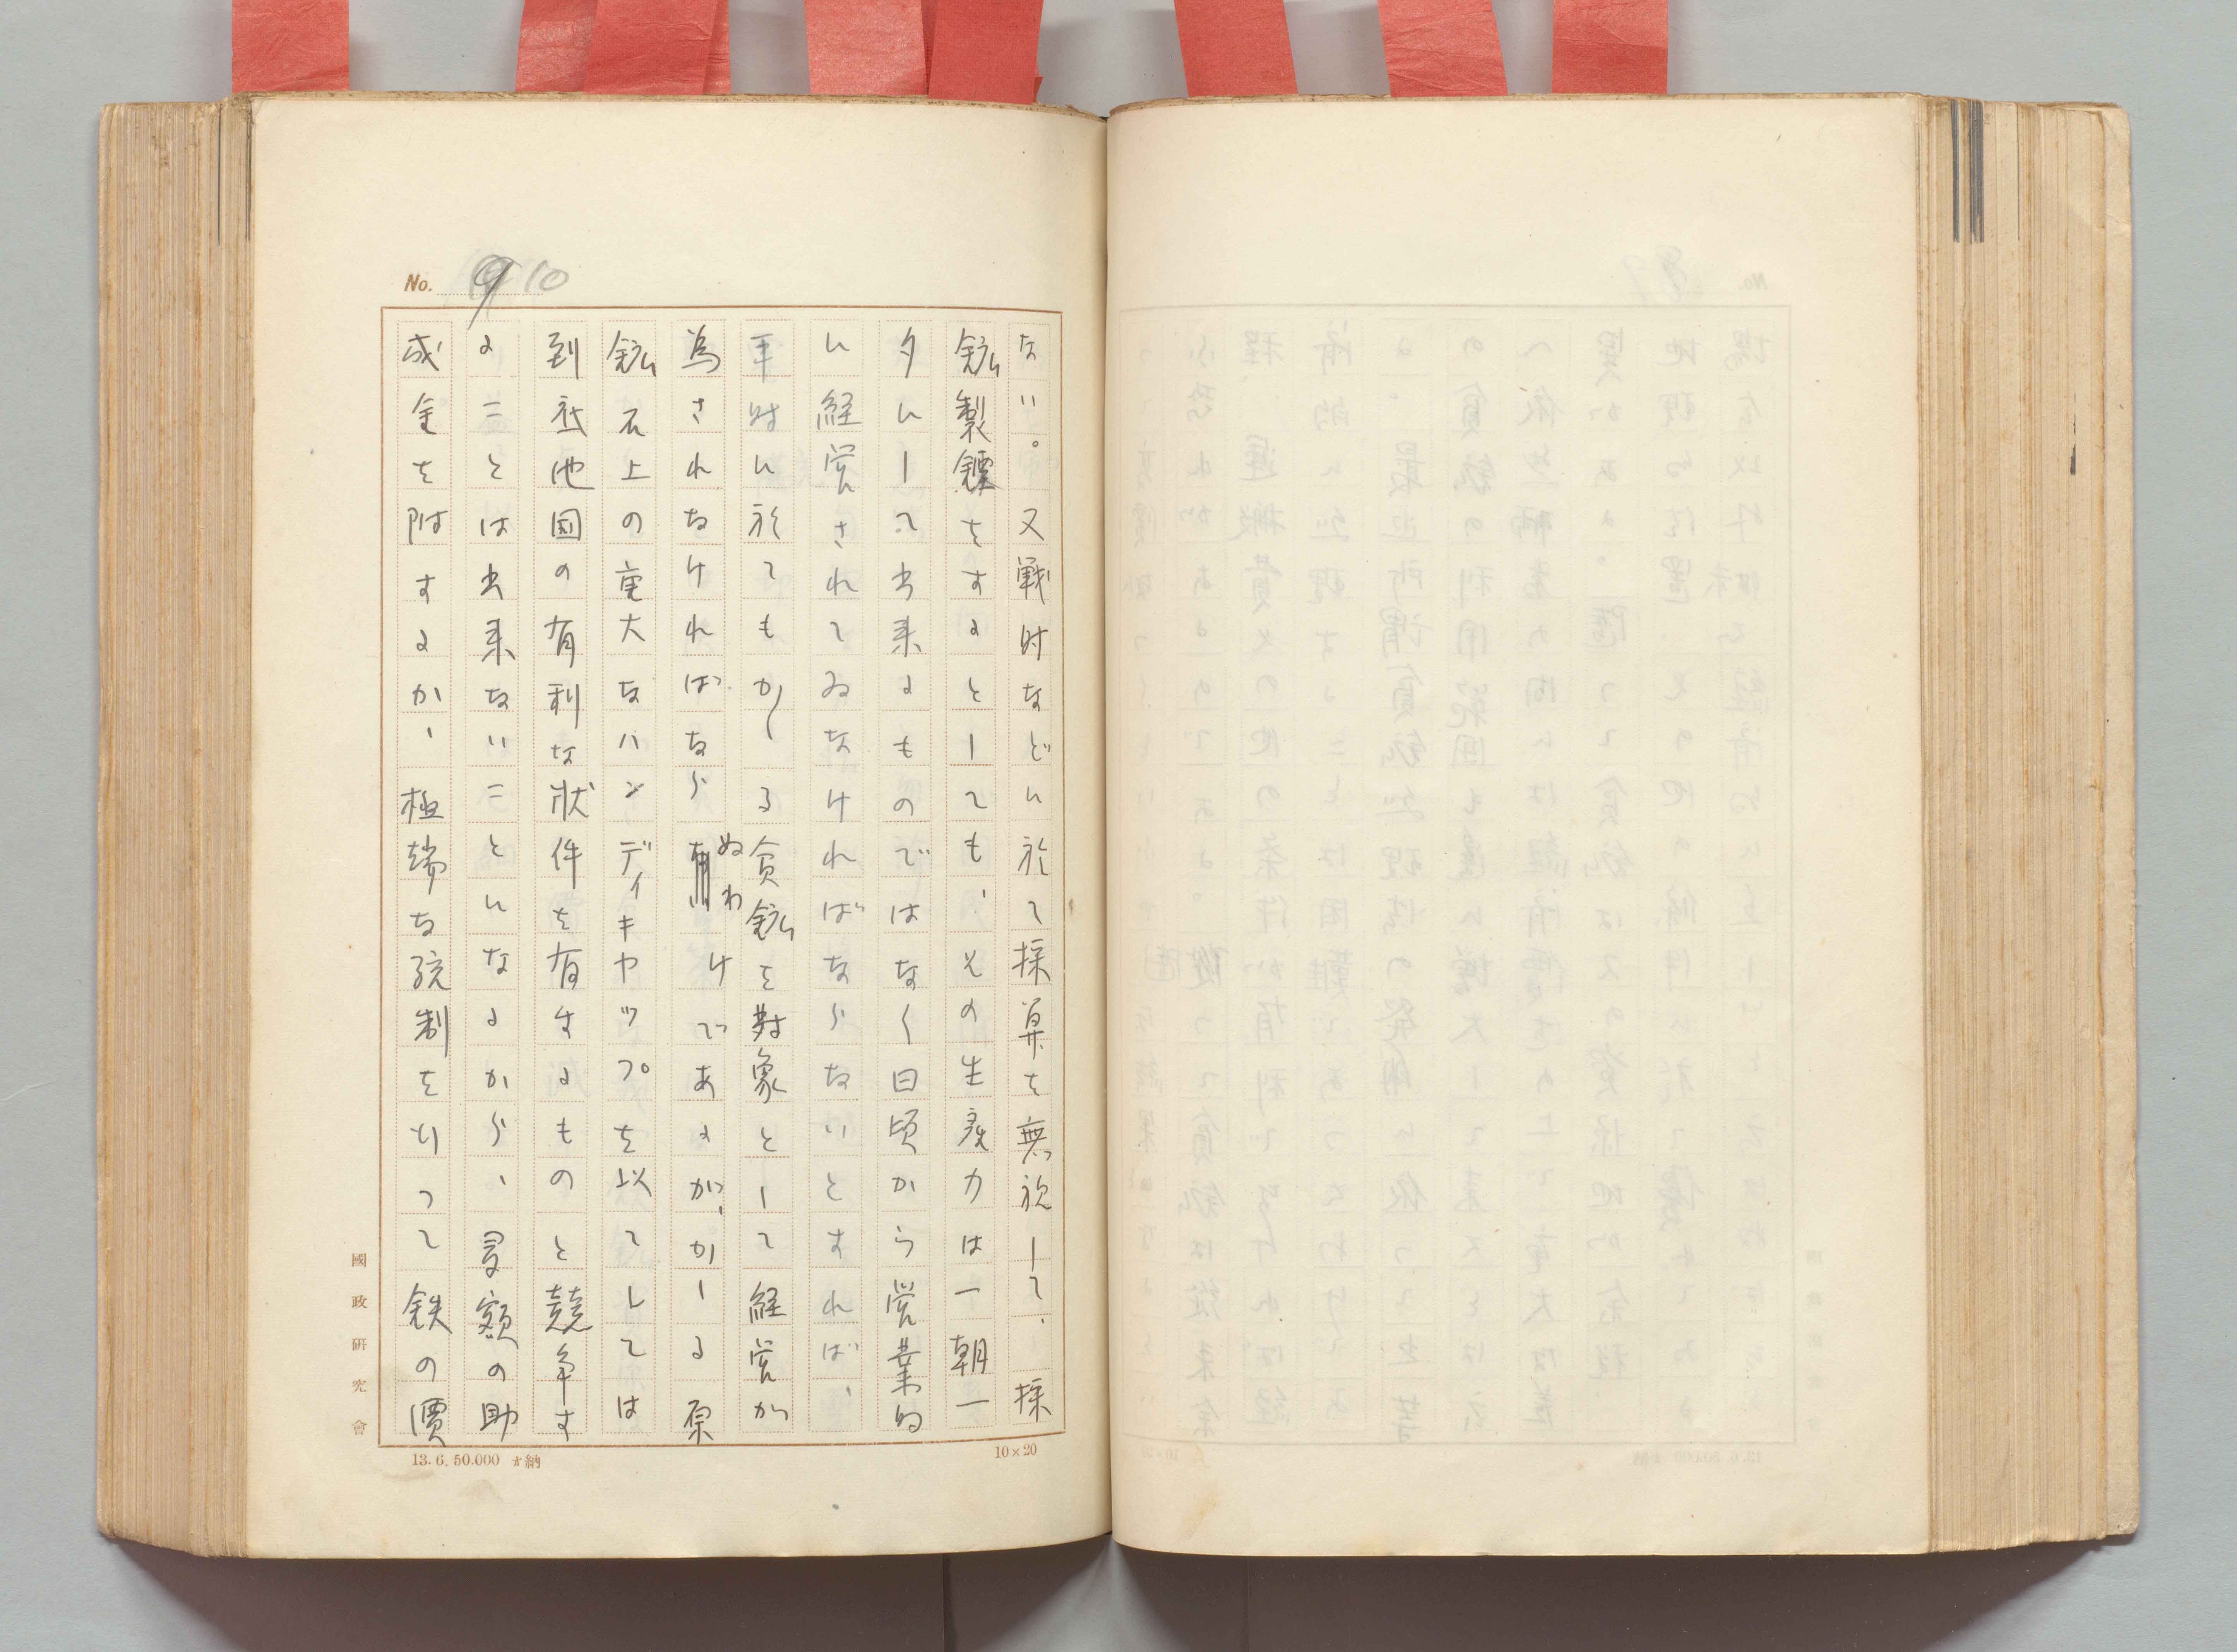 No. 9 10
ない。又戦时などに於て採算を無視して、採
鉱製錬をするとしても、その生産力は一朝一
夕にして出来るものではなく日頃から営業的
に経営されてゐなければならないとすれば、
平时に於てもかゝる貧鉱を対象として経営が
為されなければならぬわけであるが、かゝる原
鉱石上の重大なハンディキャップを以てしては
到底他国の有利な状件を有するものと競争す
ることは出来ないことになるから、冥額の助
成金を附するか、極端な統制を行つて鉄の價
國政研究會
13.6.50.000 納
10×20